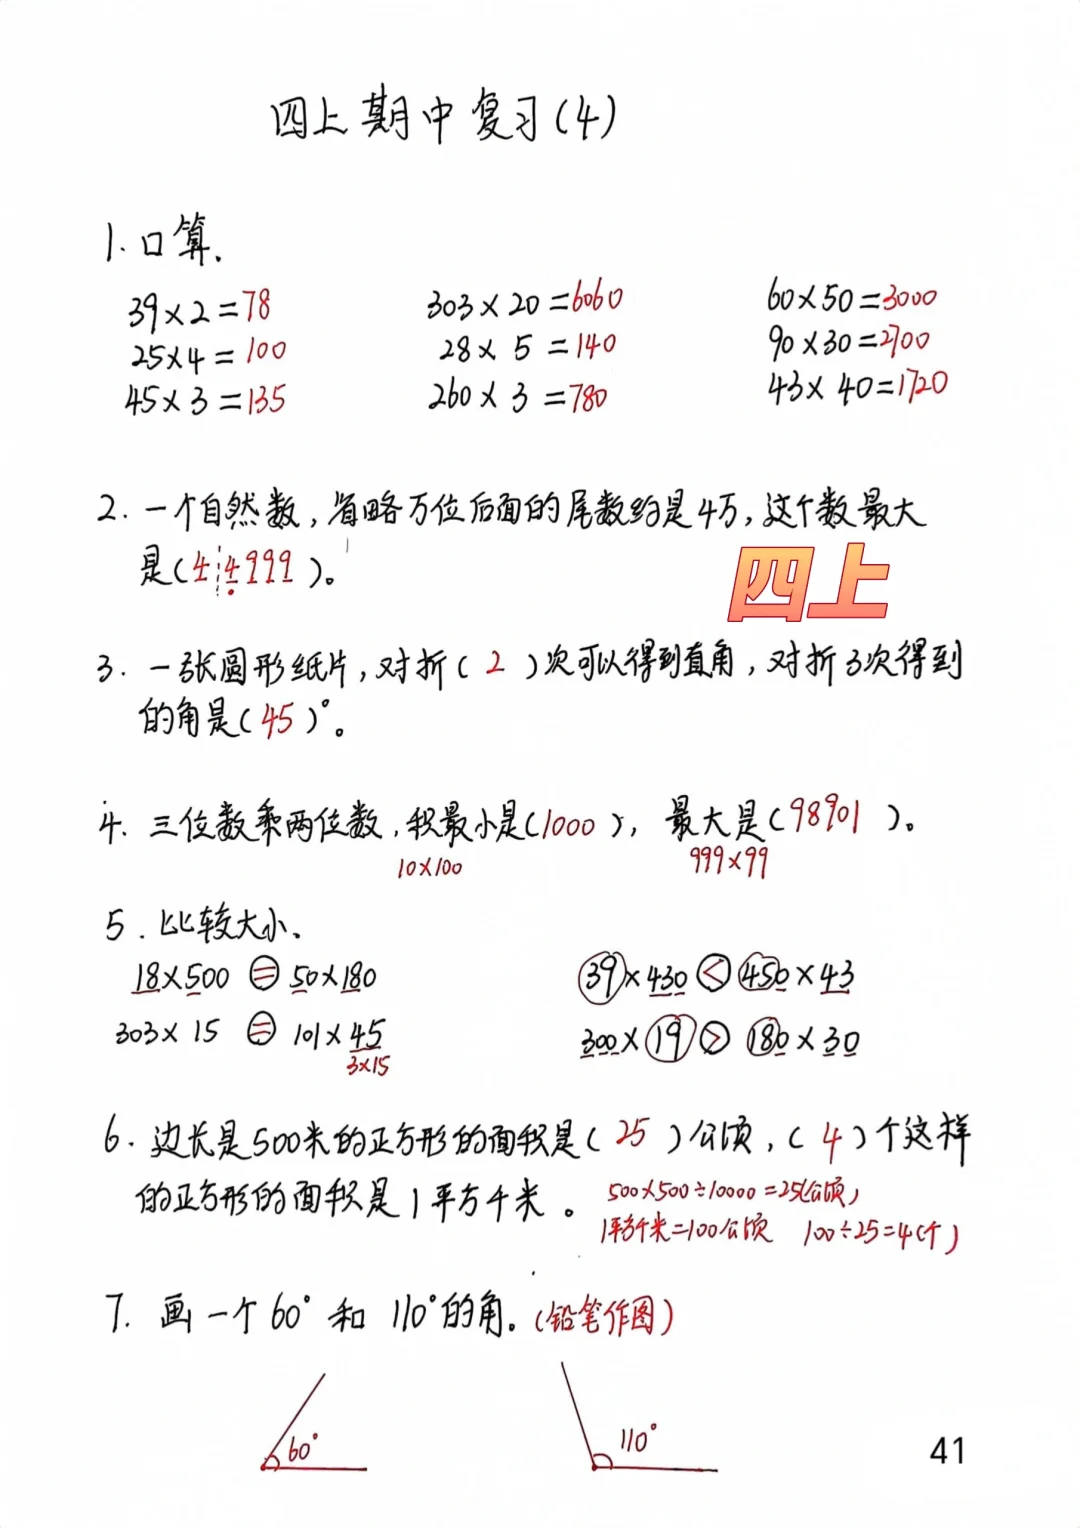 四上期中复习(4)
1.口算.
39×2=78 303×20=6060 60×50=3000
25×4=100 28×5=140 90×30=2700
45×3=135 260×3=780 43×40=1720
2.一个自然数,省略万位后面的尾数约是4万,这个数最大
是(44999)。
四上
3.一张圆形纸片,对折(2)次可以得到直角,对折3次得到
的角是(45)°。
4.三位数乘两位数,积最小是(1000),最大是(98901)。
10×100 999×99
5.比较大小、
18×500=50×180 39×430<450×43
303×15=101×45 300×19>180×30
3×15
6.边长是500米的正方形的面积是(25)公顷,(4)个这样
的正方形的面积是1平方千米。
500×500÷10000=25(公顷)
1平方千米=100公顷 100÷25=4(个)
7.画一个60°和110°的角。(铅笔作图)
60° 110°
41